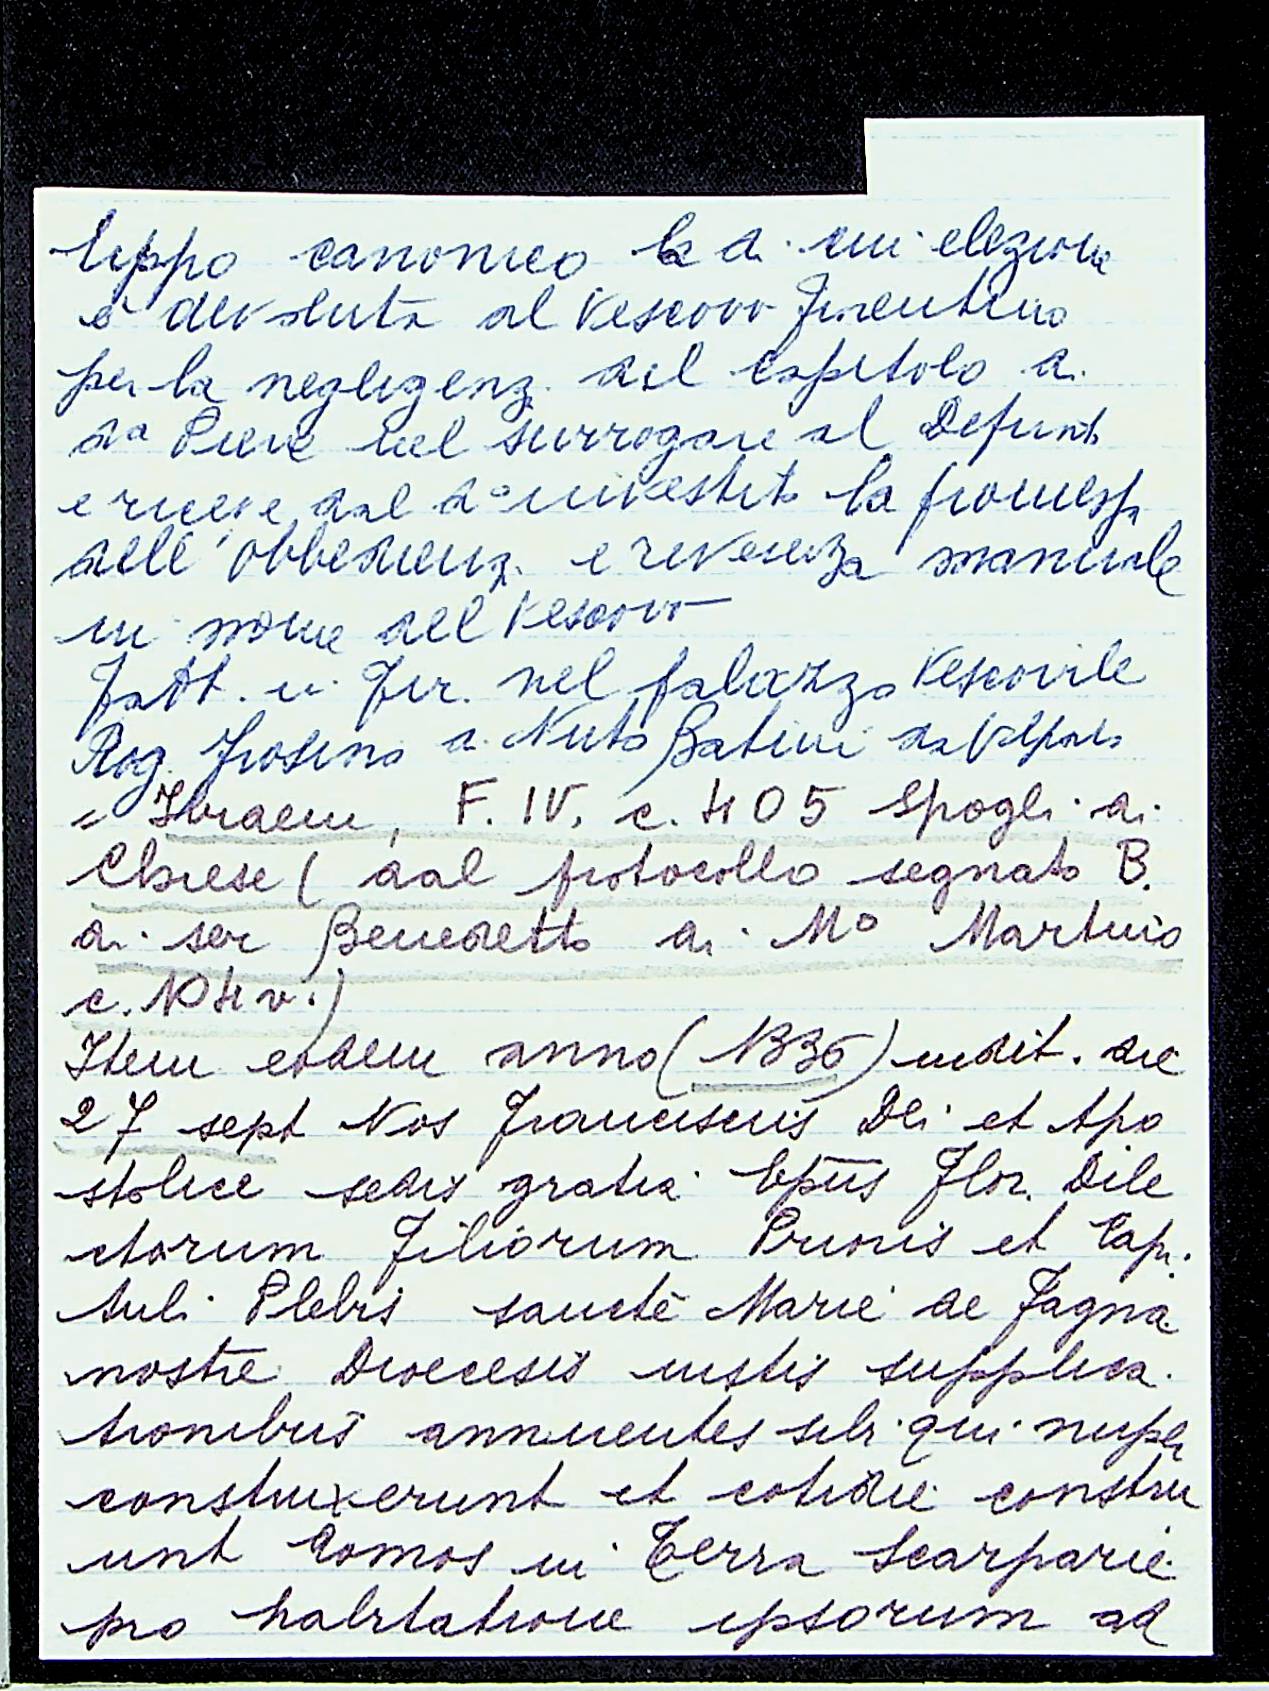 Lippo canonico la di cui elezione
è devoluta al Vescovo Fiorentino
per la negligenz. del Capitolo di
da Pieve nel surrogare al Defunt.
e riceve dal do investito la promessa
dell'obbedienz. e reverenza manuale
in nome del Vescovo
Fatt. in Fir. nel palazzo Vescovile
Rog. Frosino di Nuto Batini da
= Ibidem, F. IV, c. 405 Spogli di
Chiese ( dal protocollo segnato B.
di ser Benedetto di Mo Martino
c. 104 v.)
Item eodem anno (1336) indit. die
27 sept Nos Franciscus Dei et Apo
stolice sedis gratia Epus Flor. Dile
ctorum Filiorum Prioris et Capi.
tuli Plebis sancte Marie de Fagna
nostre Diocesis iustis supplica.
tionibus annuentes sibi qui nuper
construxerunt et cotidie constru
unt Domos in Terra Scarparie
pro habitatione ipsorum ad